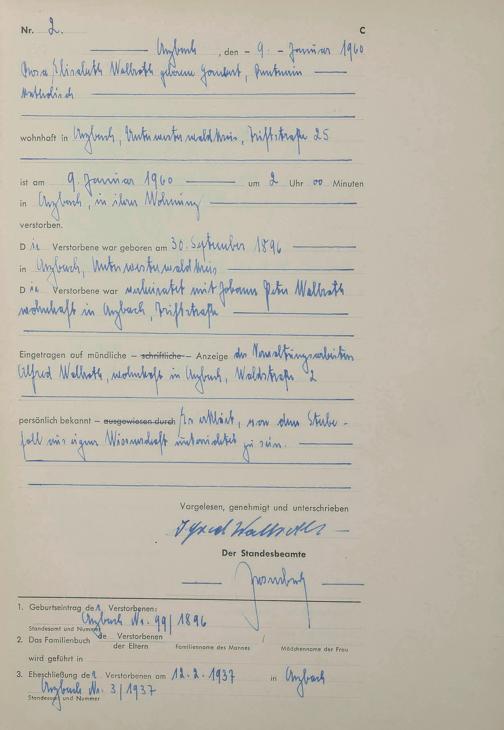 Nr. 2. C
Arzbach, den - 9. - Januar 1960
Rosa Elisabeth Wallroth geborene, Rentnerin
katholisch
wohnhaft in Arzbach, Unterwesterwaldkreis, Triftstraße 25
ist am 9. Januar 1960 um 2 Uhr 00 Minuten
in Arzbach, in ihrer Wohnung
verstorben.
Die Verstorbene war geboren am 30. September 1896
in Arzbach, Unterwesterwaldkreis
Die Verstorbene war verheiratet mit Johann Peter Wallroth
wohnhaft in Arzbach, Triftstraße
Eingetragen auf mündliche – schriftliche – Anzeige des Verwaltungsarbeiters
Alfred Wallroth, wohnhaft in Arzbach, Waldstraße 2
persönlich bekannt – ausgewiesen durch Er erklärt, von dem Sterbe-
fall aus eigner Wissenschaft unterrichtet zu sein.
Vorgelesen, genehmigt und unterschrieben
Alfred Wallroth
Der Standesbeamte
1. Geburtseintrag der Verstorbenen:
Arzbach Nr. 99/1896
Standesamt und Nummer
2. Das Familienbuch de Verstorbenen
der Eltern Familienname des Mannes / Mädchenname der Frau
wird geführt in
3. Eheschließung der Verstorbenen am 12.2.1937 in Arzbach
Arzbach Nr. 3/1937
Standesamt und Nummer